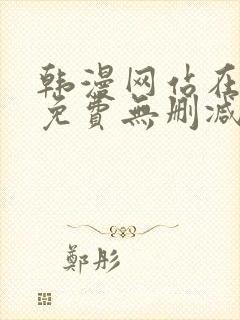 韩漫网站在
免費無删减
鄭彤